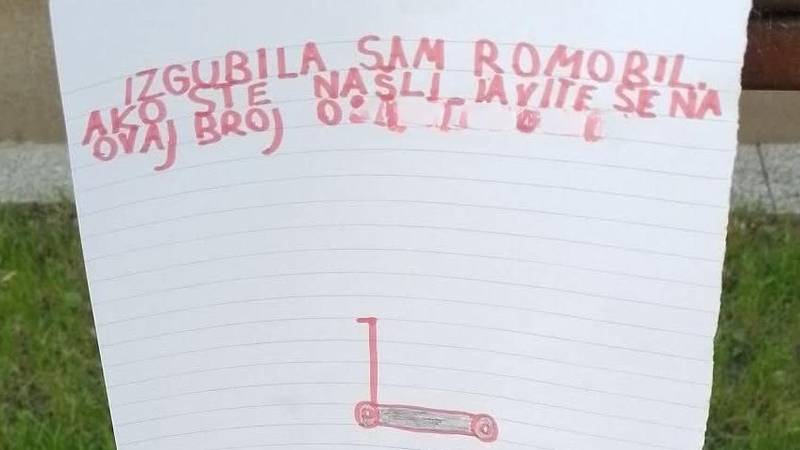 IZGUBILA SAM ROMOBIL.
AKO STE NAŠLI JAVITE SE NA
OVAJ BROJ